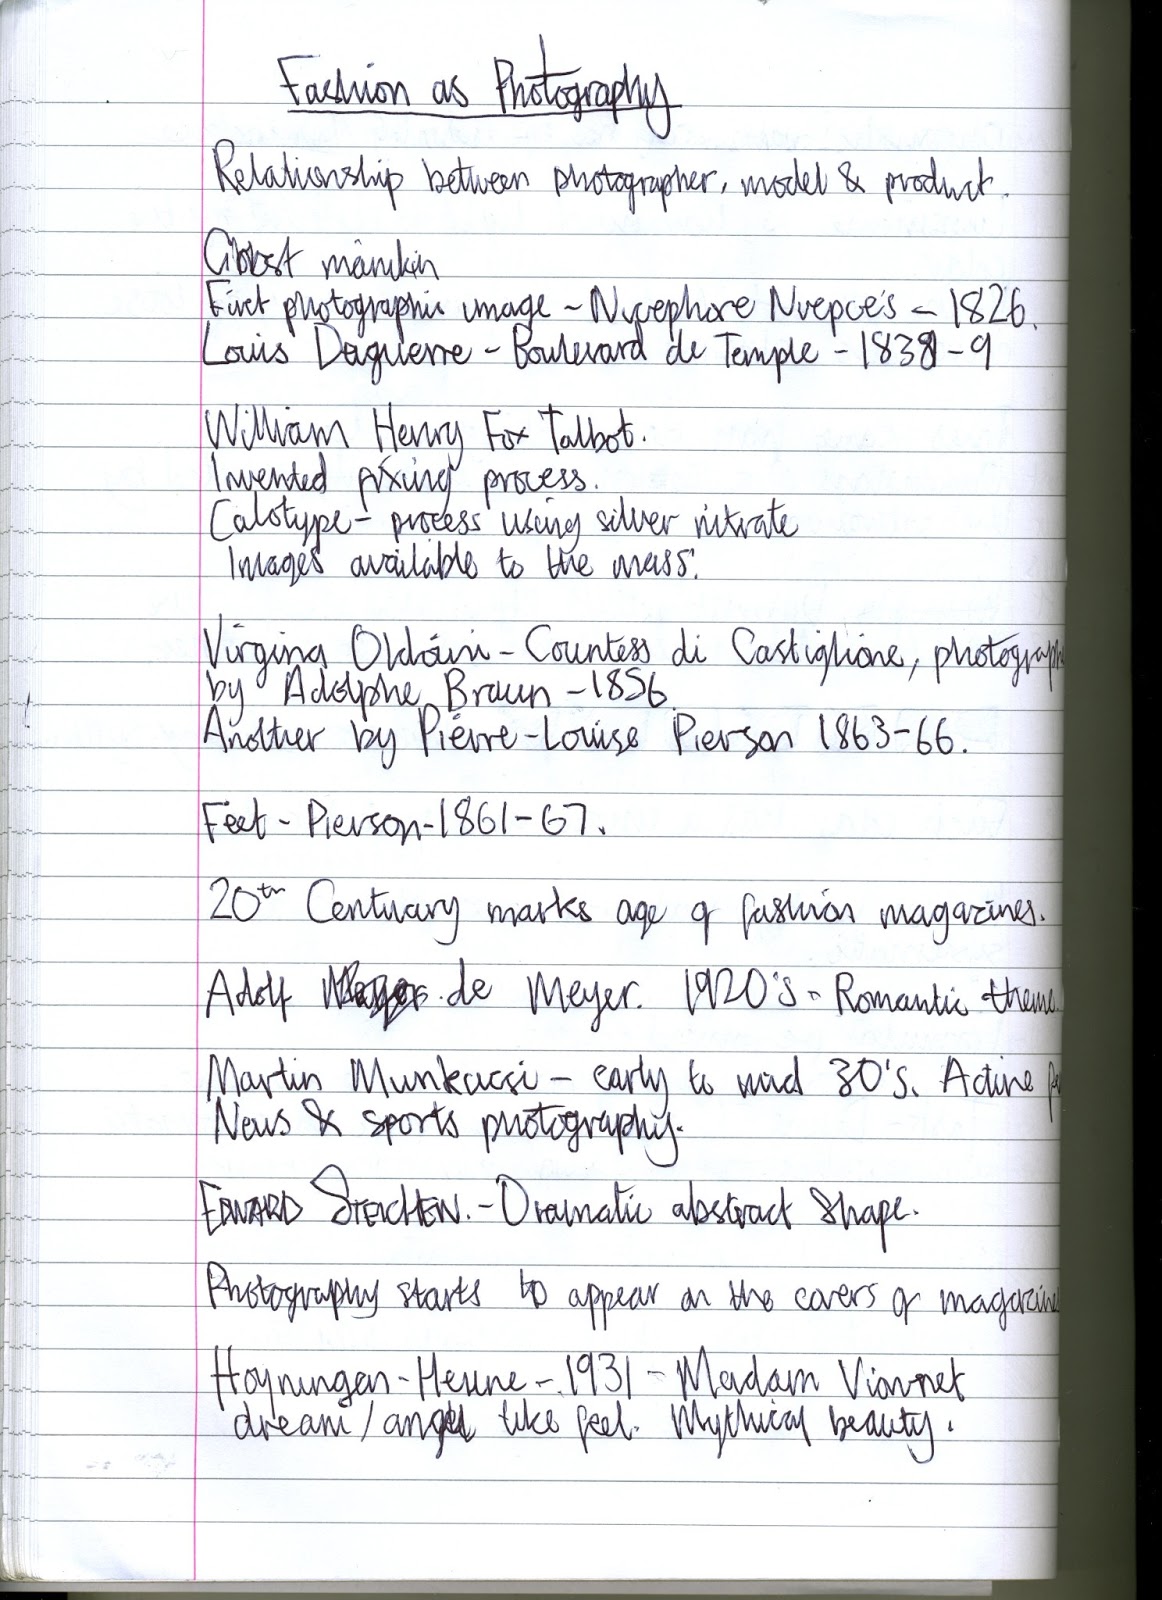 Fashion as Photography
Relationship between photographer, model & product.
Ghost manikin
First photographic image - Nycephore Nvepce's - 1826.
Louis Daguerre - Boulevard de Temple - 1838-9
William Henry Fox Talbot.
Invented fixing process.
Calotype - process using silver nitrate
Images available to the mass.
Virgina Oldoini - Countess di Castiglione, photograph
by Adolphe Braun - 1856.
Another by Pierre-Louise Pierson 1863-66.
Feet - Pierson - 1861-67.
20th Centuary marks age of fashion magazines.
Adolf de Meyer. 1920's - Romantic theme.
Martin Munkacsi - early to mid 30's. Active
News & sports photography.
EDWARD STEICHEN. - Dramatic abstract shape.
Photography starts to appear on the covers of magazine
Hoyningen-Heune - 1931 - Madam Vionnet
dream/angel like feel. Mythical beauty.